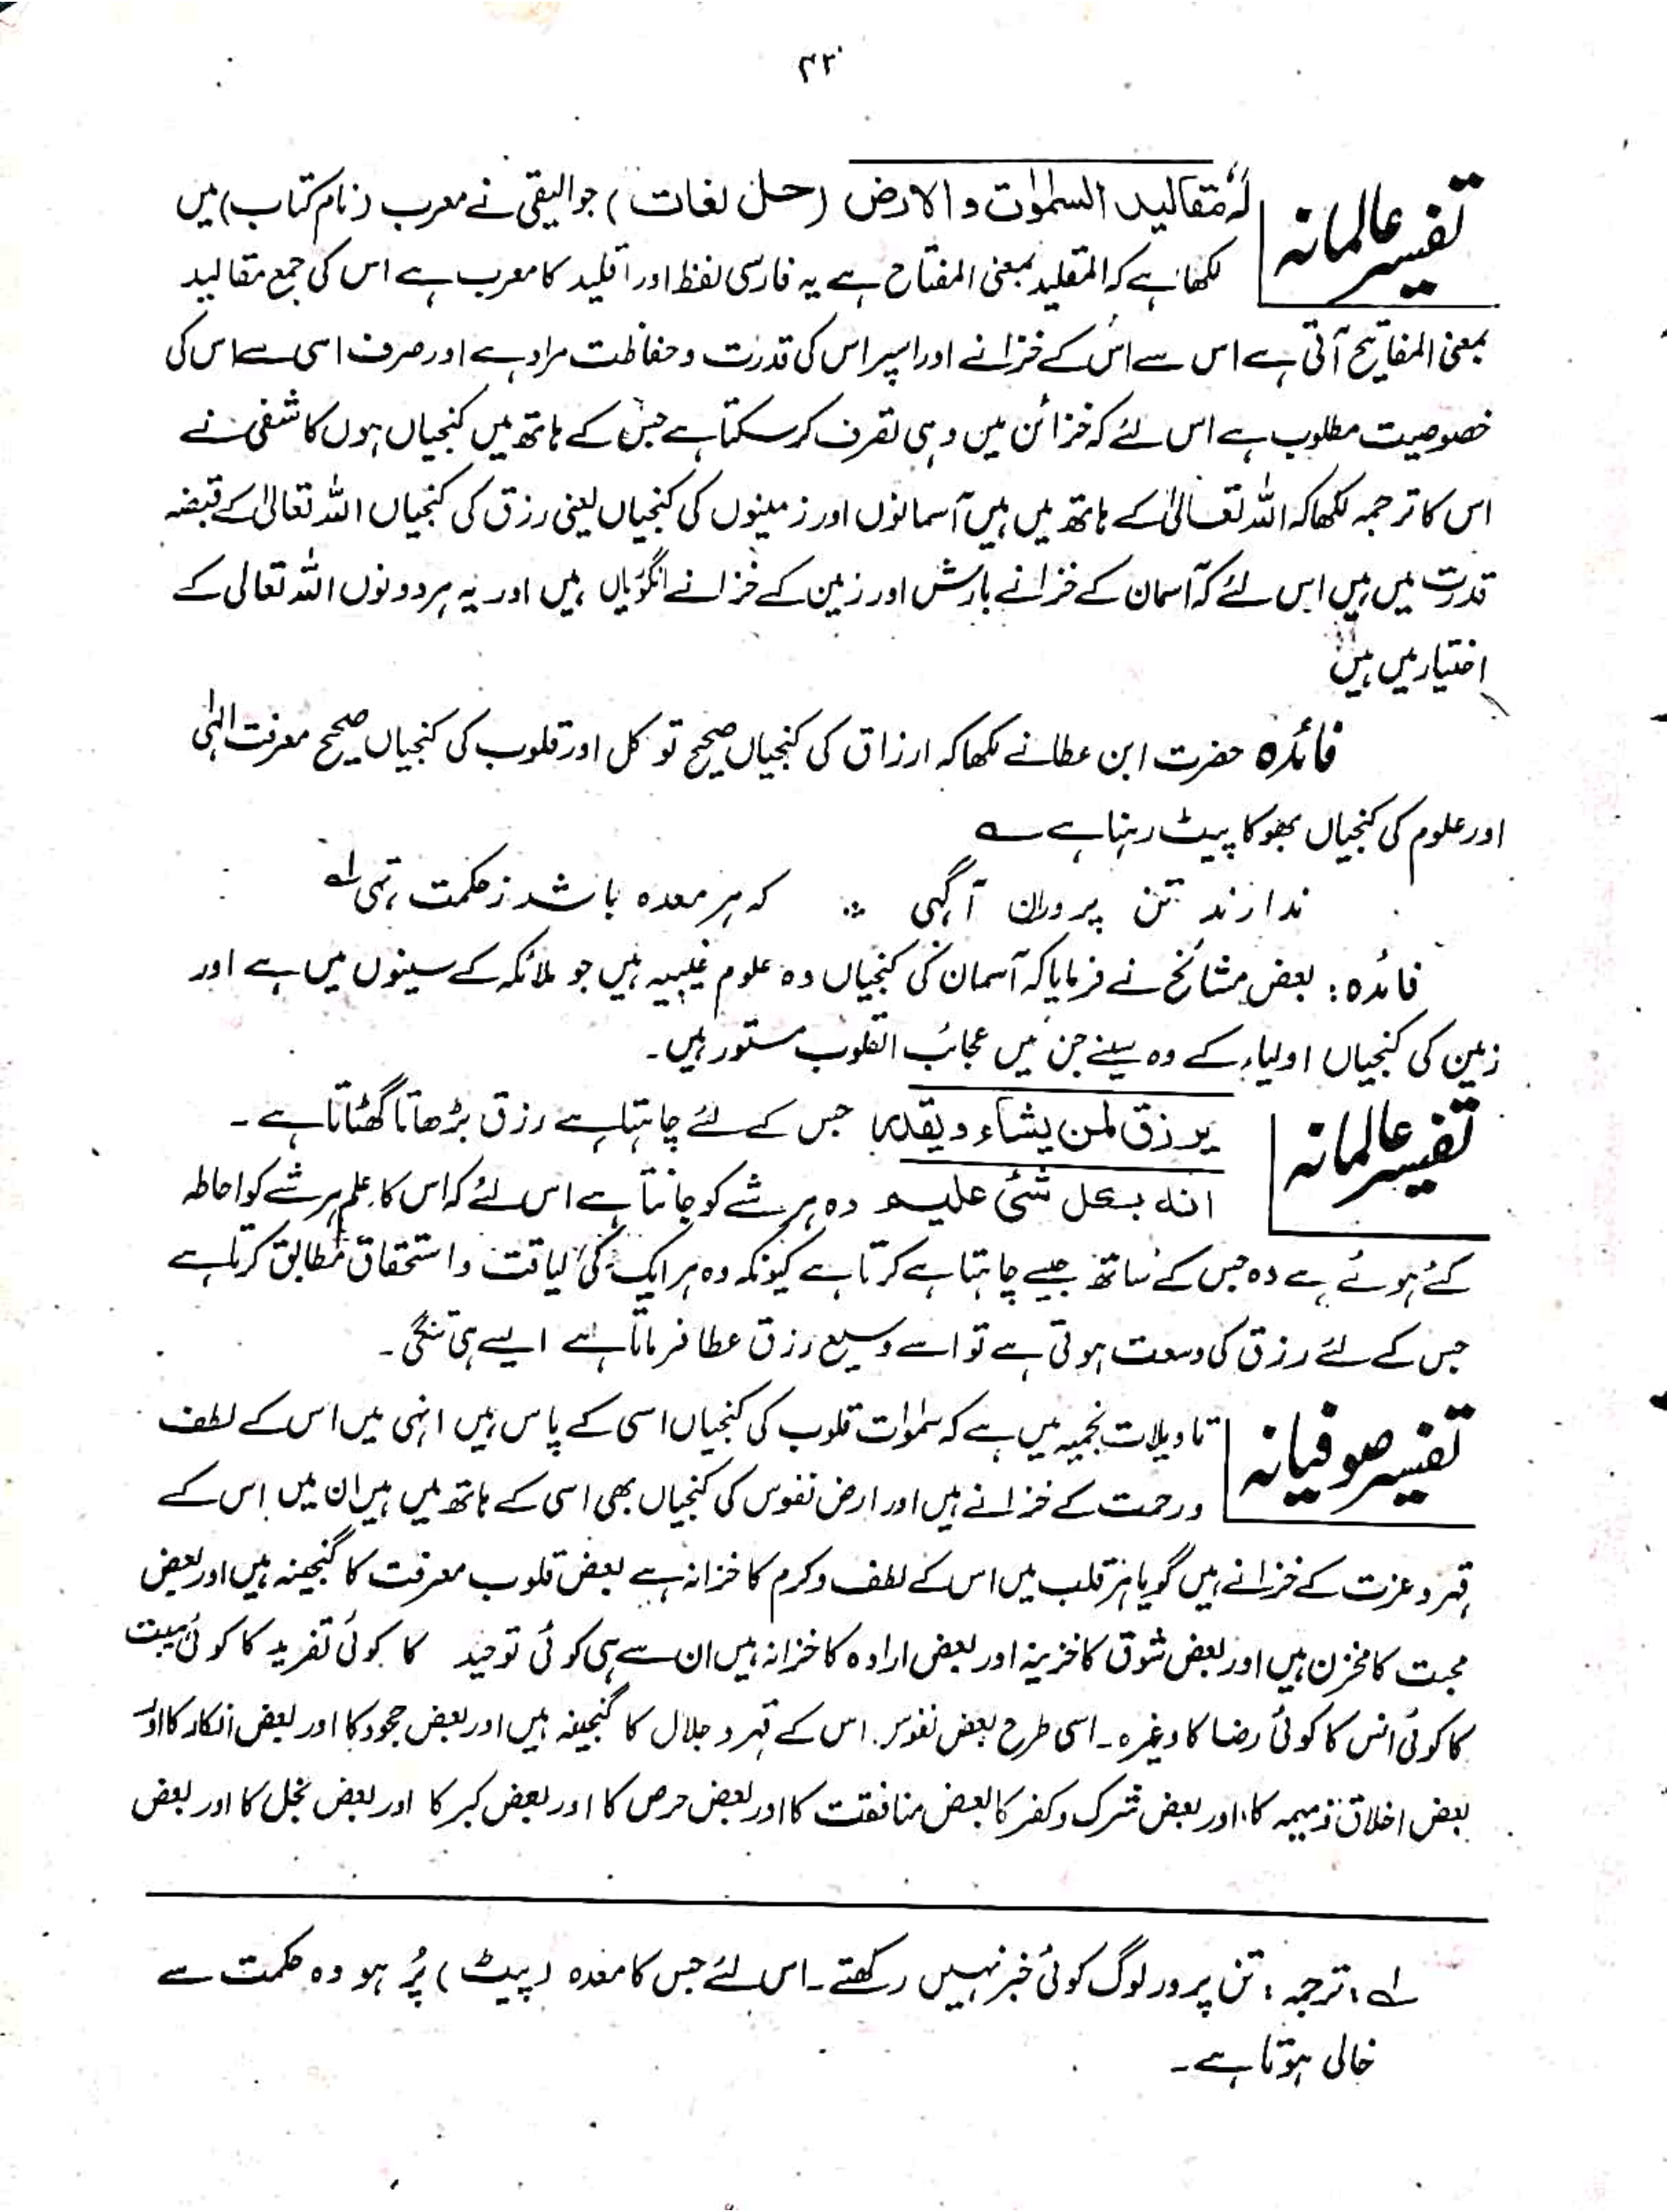 ۲۳
تفسیر عالمانہ
لہٗ مقالید السمٰوٰت و الارض (حل لغات) جوالیقی نے معرب (نام کتاب) میں
لکھا ہے کہ المقلید بمعنی المفتاح ہے یہ فارسی لفظ اور اقلید کا معرب ہے اس کی جمع مقالید
بمعنی المفاتیح آتی ہے اس سے اس کے خزانے اور اسپر اس کی قدرت و حفاظت مراد ہے اور صرف اسی سے اس کی
خصوصیت مطلوب ہے اس لئے کہ خزائن میں وہی تصرف کر سکتا ہے جس کے ہاتھ میں کنجیاں ہوں کاشفی نے
اس کا ترجمہ لکھا کہ اللہ تعالیٰ کے ہاتھ میں ہیں آسمانوں اور زمینوں کی کنجیاں یعنی رزق کی کنجیاں اللہ تعالیٰ کے قبضہ
قدرت میں ہیں اس لئے کہ آسمان کے خزانے بارش اور زمین کے خزانے انگوریاں ہیں اور یہ ہر دونوں اللہ تعالی کے
اختیار میں ہیں
فائدہ حضرت ابن عطا نے لکھا کہ ارزاق کی کنجیاں صحیح توکل اور قلوب کی کنجیاں صحیح معرفت الہٰی
اور علوم کی کنجیاں بھوکا پیٹ رہنا ہے ؎
ندارند تن پروران آگہی ؞ کہ ہر معدہ باشد زحکمت تہی لہ
فائدہ : بعض مشائخ نے فرمایا کہ آسمان کی کنجیاں وہ علوم غیبیہ ہیں جو ملائکہ کے سینوں میں ہے اور
زمین کی کنجیاں اولیاء کے وہ سینے جن میں عجائب القلوب مستور ہیں۔
تفسیر عالمانہ
یرزق لمن یشاء و یقدر جس کے لئے چاہتا ہے رزق بڑھاتا گھٹاتا ہے ۔
انہ بکل شئی علیم وہ ہر شے کو جانتا ہے اس لئے کہ اس کا علم ہر شے کو احاطہ
کئے ہوئے ہے وہ جس کے ساتھ جیسے چاہتا ہے کرتا ہے کیونکہ وہ ہر ایک کی لیاقت و استحقاق مطابق کرتا ہے
جس کے لئے رزق کی وسعت ہوتی ہے تو اسے وسیع رزق عطا فرماتا ہے ایسے ہی تنگی ۔
تفسیر صوفیانہ
تاویلات نجمیہ میں ہے کہ سمٰوٰت قلوب کی کنجیاں اسی کے پاس ہیں انہی میں اس کے لطف
و رحمت کے خزانے ہیں اور ارض نفوس کی کنجیاں بھی اسی کے ہاتھ میں ہیں ان میں اس کے
قہر و عزت کے خزانے ہیں گویا ہر قلب میں اس کے لطف و کرم کا خزانہ ہے بعض قلوب معرفت کا گنجینہ ہیں اور بعض
محبت کا مخزن ہیں اور بعض شوق کا خزینہ اور بعض ارادہ کا خزانہ ہیں ان سے ہی کوئی توحید کا کوئی تفرید کا کوئی ہیبت
کا کوئی انس کا کوئی رضا کا وغیرہ ۔ اسی طرح بعض نفوس اس کے قہر و جلال کا گنجینہ ہیں اور بعض جحود کا اور بعض انکار کا اور
بعض اخلاق ذمیمہ کا اور بعض شرک و کفر کا بعض منافقت کا اور بعض حرص کا اور بعض کبر کا اور بعض بخل کا اور بعض
لے : ترجمہ : تن پرور لوگ کوئی خبر نہیں رکھتے ۔ اس لئے جس کا معدہ (پیٹ) پُر ہو وہ حکمت سے
خالی ہوتا ہے ۔